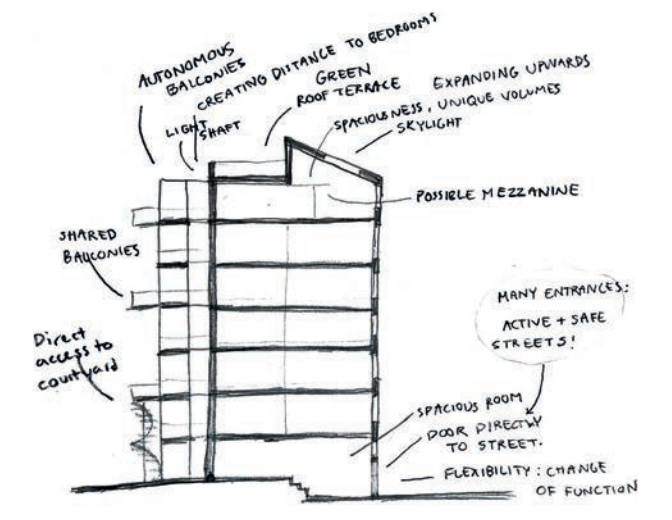 AUTONOMOUS
BALCONIES
CREATING DISTANCE TO BEDROOMS
LIGHT
SHAFT
GREEN
ROOF TERRACE
EXPANDING UPWARDS
SPACIOUSNESS, UNIQUE VOLUMES
SKYLIGHT
POSSIBLE MEZZANINE
SHARED
BALCONIES
MANY ENTRANCES:
ACTIVE + SAFE
STREETS!
Direct
access to
courtyard
SPACIOUS ROOM
DOOR DIRECTLY
TO STREET.
FLEXIBILITY: CHANGE
OF FUNCTION